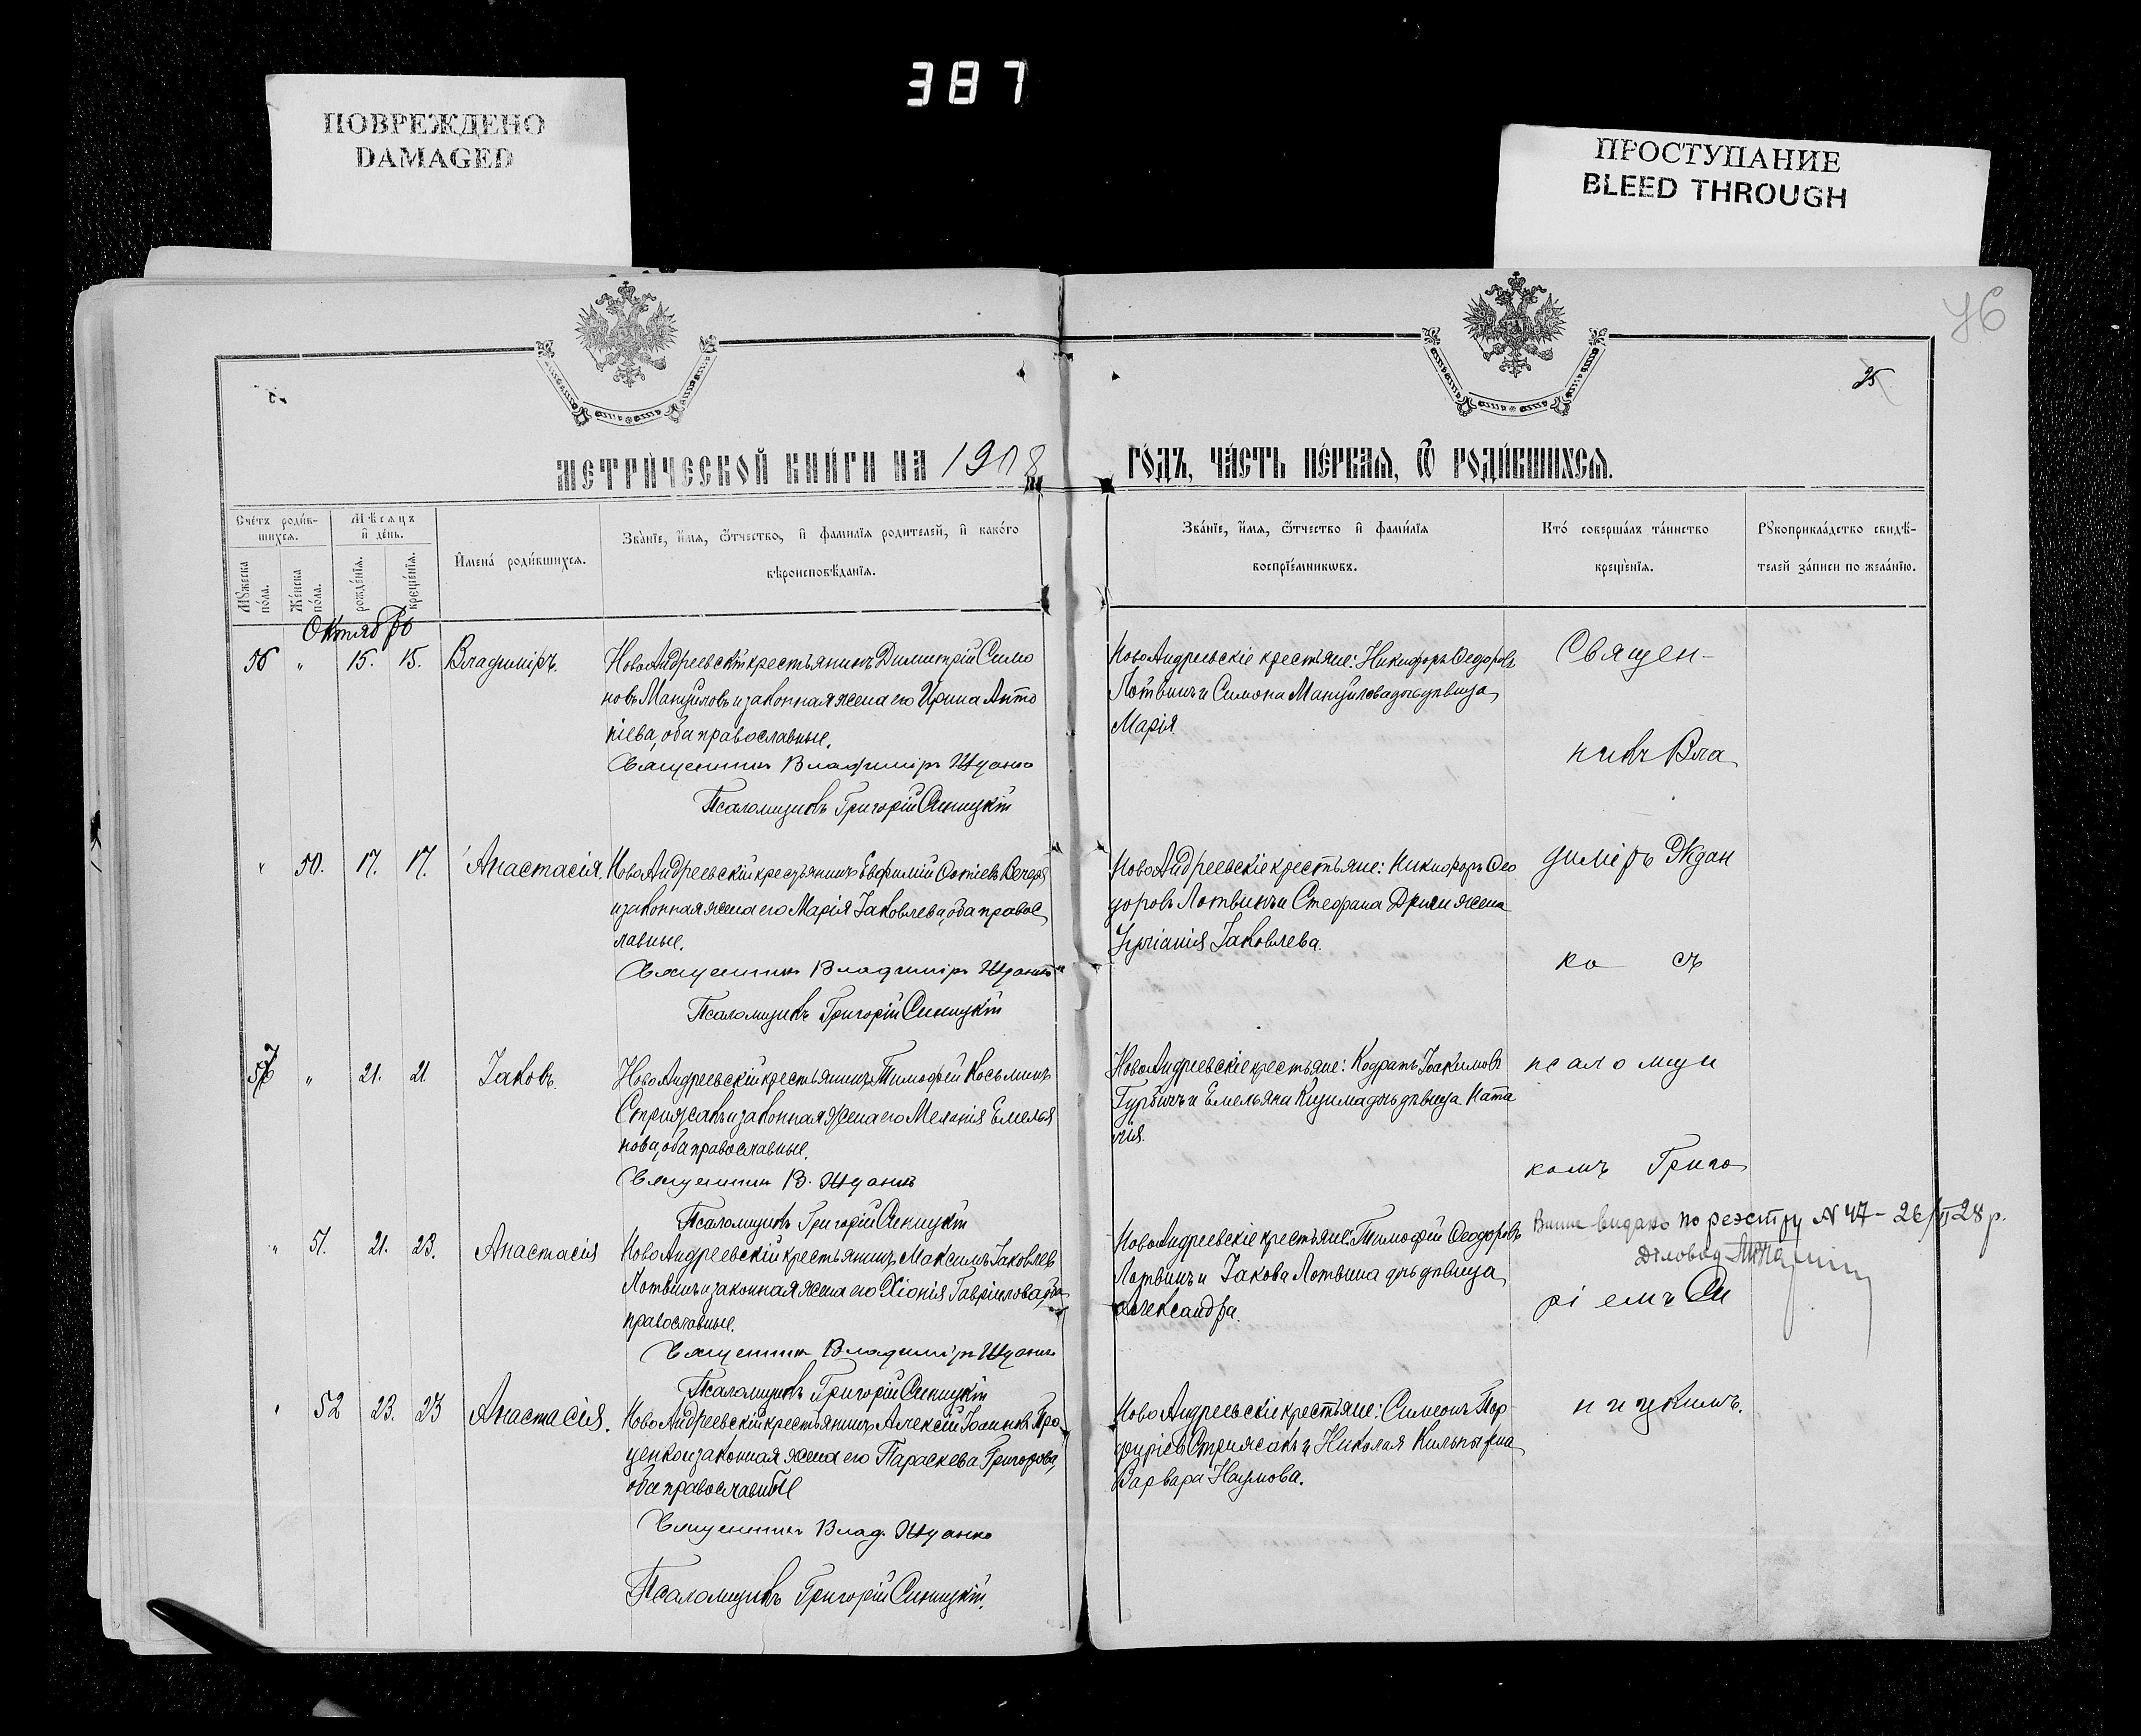 387
ПОВРЕЖДЕНО
DAMAGED
ПРОСТУПАНИЕ
BLEED THROUGH
76
25
МЕТРИ́ЧЕСКОЙ КНИ́ГИ НА 1908
ГО́ДЪ, ЧА́СТЬ ПЕ́РВАѦ, Ѿ РОДИ́ВШИХСѦ.
Сче́тъ роди́в-
шихсѧ.
Мꙋ́жеска по́ла.
Же́нска по́ла.
Мѣ́сѧцъ
и҆ де́нь.
рожде́нїѧ.
креще́нїѧ.
И҆мена̀ роди́вшихсѧ.
Зва́нїе, и҆́мѧ, ѻ҆́тчество, и҆ фами́лїѧ роди́телей, и҆ како́гѡ
вѣроисповѣ́данїѧ.
Зва́нїе, и҆́мѧ, ѻ҆́тчество и҆ фами́лїѧ
воспрїе́мникѡвъ.
Кто̀ соверша́лъ та́инство
креще́нїѧ.
Рꙋкоприкла́дство свидѣ́-
телей за́писи по жела́нїю.
Октябрь
56 " 15. 15. Владиміръ.
НовоАндреевскій крестьянинъ Димитрій Симо
новъ Мануиловъ и законная жена его Ирина Анто
ніева, оба православные.
Священникъ Владиміръ Жданко
Псаломщикъ Григорій Синицкій
НовоАндреевскіе крестьяне: Никифоръ Ѳедоровъ
Лотвинъ и Симона Мануилова дочь девица
Марія
" 50. 17. 17. Анастасія.
НовоАндреевскій крестьянинъ Евфимій
и законная жена его Марія Іаковлева, оба правос
лавные.
Священникъ Владиміръ Жданко
Псаломщикъ Григорій Синицкій
НовоАндреевскіе крестьяне: Никифоръ Ѳео
доровъ Лотвинъ и Стефана жена
Іаковлева.
57 " 21. 21 Іаковъ.
НовоАндреевскій крестьянинъ Тимофей Косьминъ
Стрижакъ и законная жена его Меланія Емелья
нова, оба православные.
Священникъ В. Жданко
Псаломщикъ Григорій Синицкій
НовоАндреевскіе крестьяне: Кодратъ Іоакимовъ
и Емельяна Кизима дочь девица Ната
лія.
" 51. 21. 23. Анастасія
НовоАндреевскій крестьянинъ Максимъ Іаковлев
Лотвинъ и законная жена его Хіонія Гавріилова, оба
православные.
Священникъ Владиміръ Жданко
Псаломщикъ Григорій Синицкій
НовоАндреевскіе крестьяне: Тимофей Ѳеодоровъ
Лотвинъ и Іакова Лотвина дочь девица
Александра.
" 52 23. 23 Анастасія.
НовоАндреевскій крестьянинъ Алексій Іоанновъ Про
ценко и законная жена его Параскева Григорова,
оба православные
Священникъ Влад. Жданко
Псаломщикъ Григорій Синицкій.
НовоАндреевскіе крестьяне: Симеонъ Пор
фиріевъ Стрижакъ и Николая жена
Варвара Наумова.
Священ-
никъ Вла
диміръ Ждан
ко съ
псаломщи
комъ Григо
ріемъ Си
ницкимъ.
видано по реэстру N 47 - 26/II 28 р.
Діловод